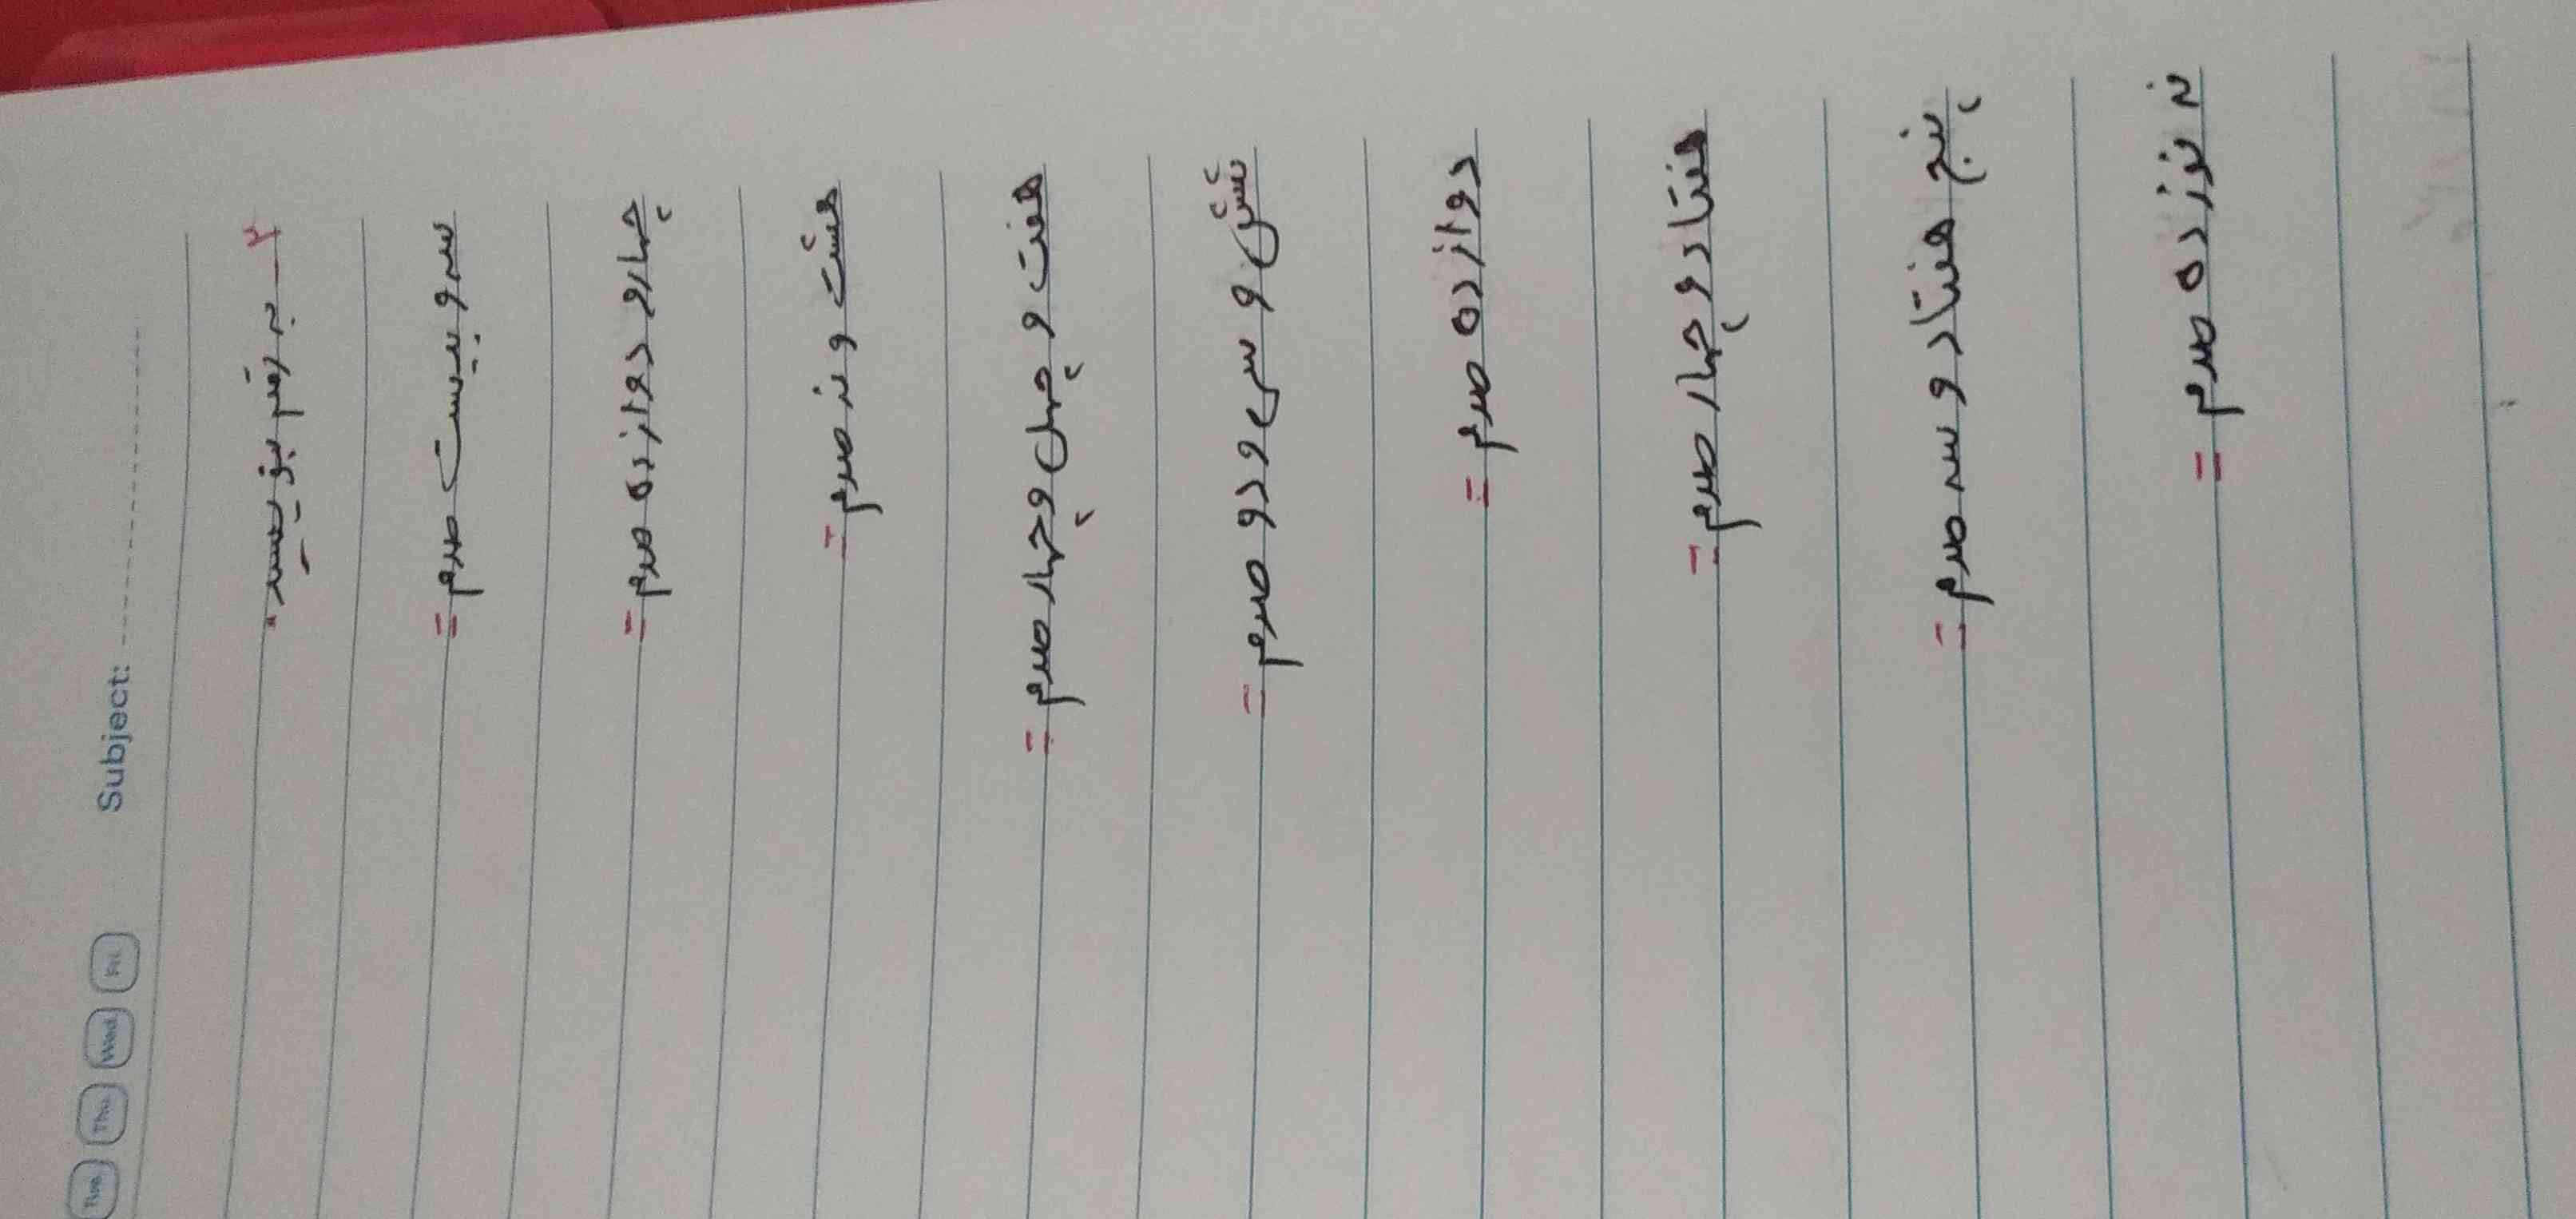 Subject:
Tue. Thu. Wed. Fri.
۲ - به رقم بنویسید.
سه و بیست صدم =
چهار و دوازده صدم =
هشت و نه صدم =
هفت و چهل و چهار صدم =
شش و سی و دو صدم =
دوازده صدم =
هفتاد و چهار صدم =
پنج هفتاد و سه صدم =
نه نوزده صدم =